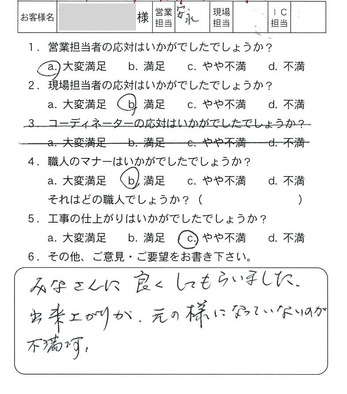 お客様名 様 営業担当 安永 現場担当 ＩＣ担当
１．営業担当者の応対はいかがでしたでしょうか？
a. 大変満足 b. 満足 c. やや不満 d. 不満
２．現場担当者の応対はいかがでしたでしょうか？
a. 大変満足 b. 満足 c. やや不満 d. 不満
３．コーディネーターの応対はいかがでしたでしょうか？
a. 大変満足 b. 満足 c. やや不満 d. 不満
４．職人のマナーはいかがでしたでしょうか？
a. 大変満足 b. 満足 c. やや不満 d. 不満
それはどの職人でしょうか？（ ）
５．工事の仕上がりはいかがでしたでしょうか？
a. 大変満足 b. 満足 c. やや不満 d. 不満
６．その他、ご意見・ご要望をお書き下さい。
みなさんに良くしてもらいました。
出来上がりが、元の様になっていないのが
不満です。